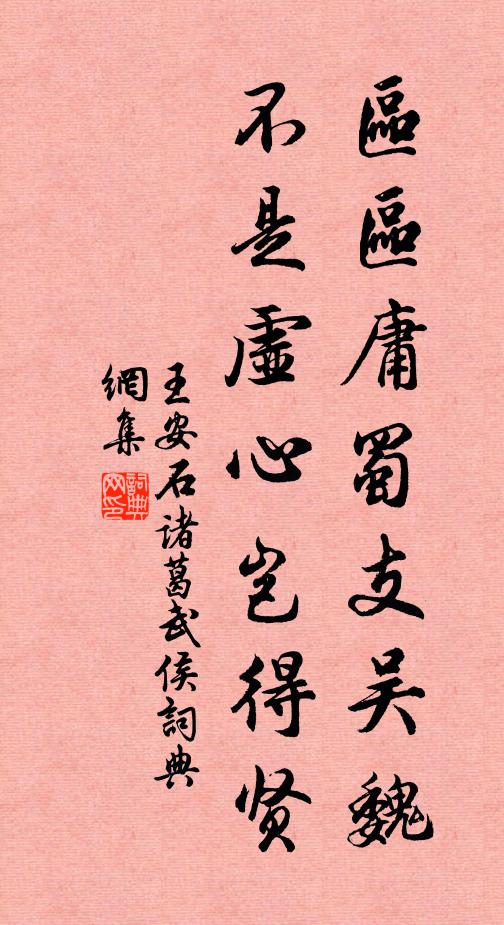 區區庸蜀支吳魏
不是虛心岂得贤
王安石诸葛武侯詞典
網集
詞典
网印